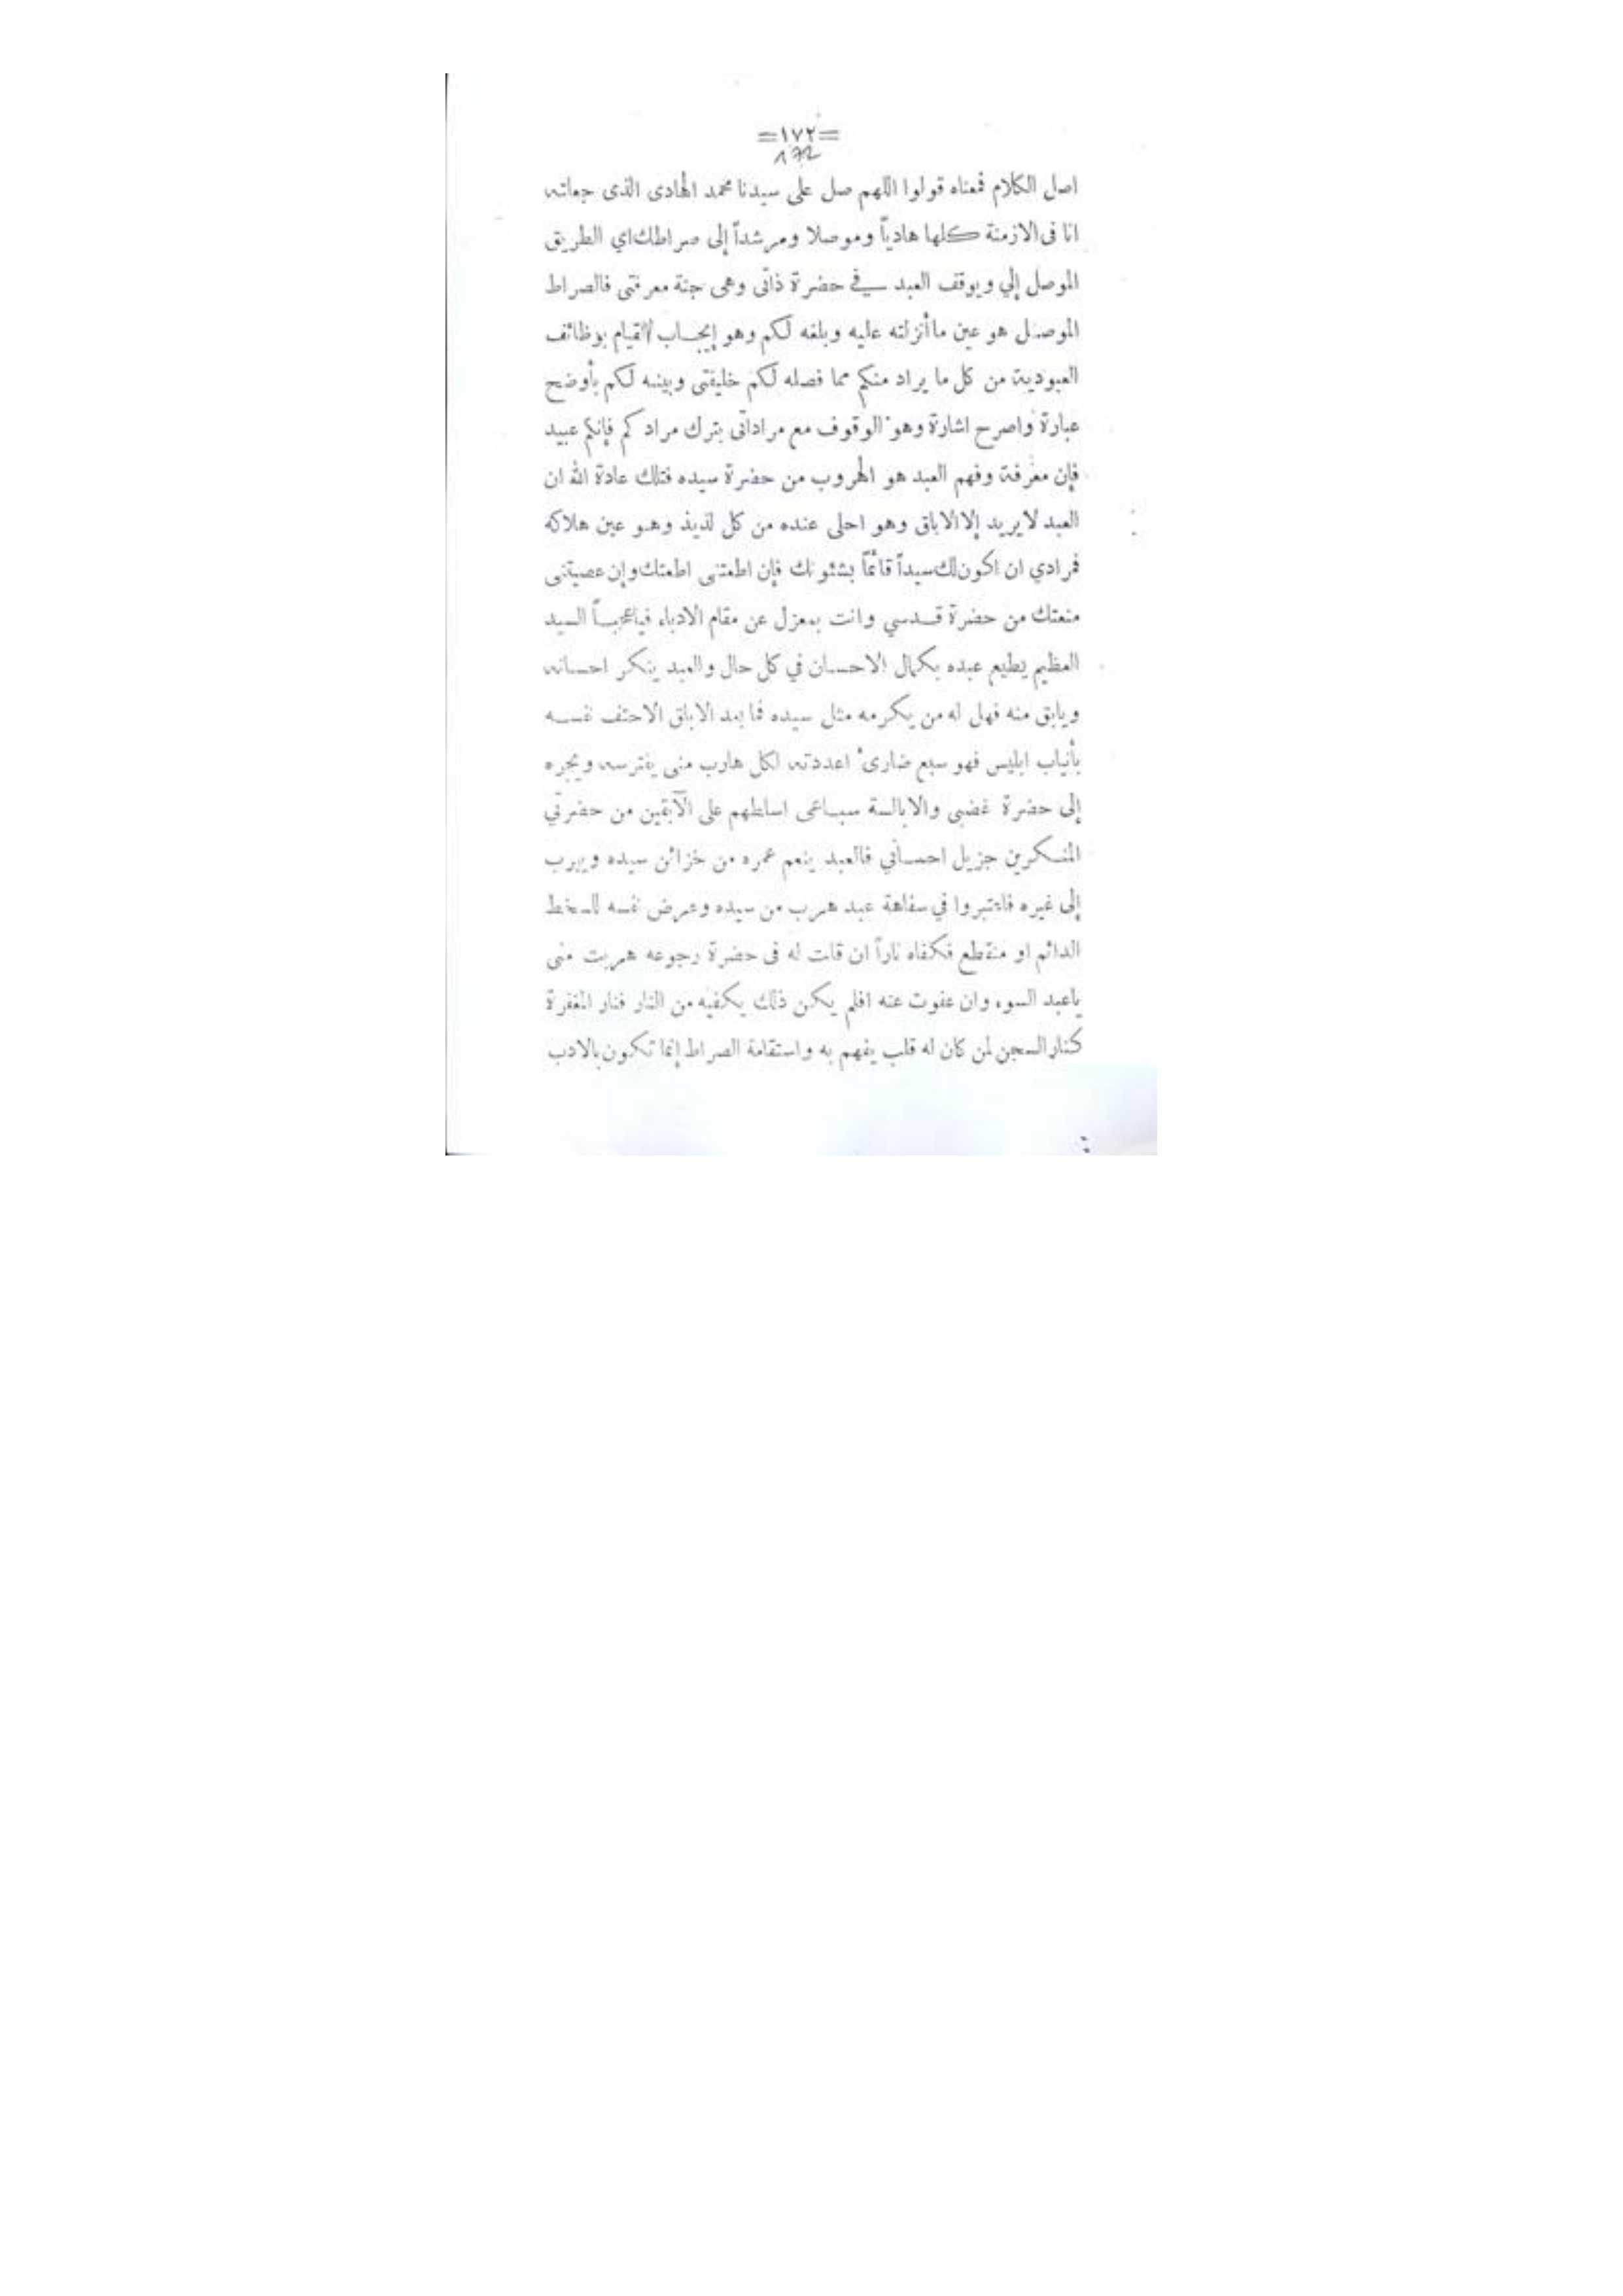 =١٧٢=
172
اصل الكلام فمعناه قولوا اللهم صل على سيدنا محمد الهادى الذى جعلته
انا فى الازمنة كلها هادياً وموصلا ومرشداً إلى صراطك اي الطريق
الموصل إلي ويوقف العبد في حضرة ذاتى وهى جنة معرفتى فالصراط
الموصل هو عين ما أنزلته عليه وبلغه لكم وهو إيجاب القيام بوظائف
العبودية من كل ما يراد منكم مما فصله لكم خليفتى وبينه لكم بأوضح
عبارة واصرح اشارة وهو الوقوف مع مراداتى بترك مرادكم فإنكم عبيد
فإن معرفة وفهم العبد هو الهروب من حضرة سيده فتلك عادة الله ان
العبد لا يريد إلا الاباق وهو احلى عنده من كل لذيذ وهو عين هلاكه
فمرادي ان اكون لك سيداً قائماً بشئونك فإن اطعتنى اطعتك وإن عصيتنى
منعتك من حضرة قدسي وانت بمعزل عن مقام الادباء فياعجباً السيد
العظيم يطيع عبده بكمال الاحسان في كل حال والعبد ينكر احسانه
ويابق منه فهل له من يكرمه مثل سيده فما بعد الاباق الاحتف نفسه
بأنياب ابليس فهو سبع ضارىء اعددته لكل هارب منى يفترسه ويجره
إلى حضرة غضبى والابالسة سباعى اسلطهم على الآبقين من حضرتي
المنكرين جزيل احساني فالعبد ينعم عمره من خزائن سيده ويهرب
إلى غيره فاعتبروا في سفاهة عبد هرب من سيده وعرض نفسه للسخط
الدائم او منقطع فكفاه ناراً ان قلت له فى حضرة رجوعه هربت منى
ياعبد السوء وان عفوت عنه افلم يكن ذلك يكفيه من النار فنار المغفرة
كنار السجن لمن كان له قلب يفهم به واستقامة الصراط إنما تكون بالادب